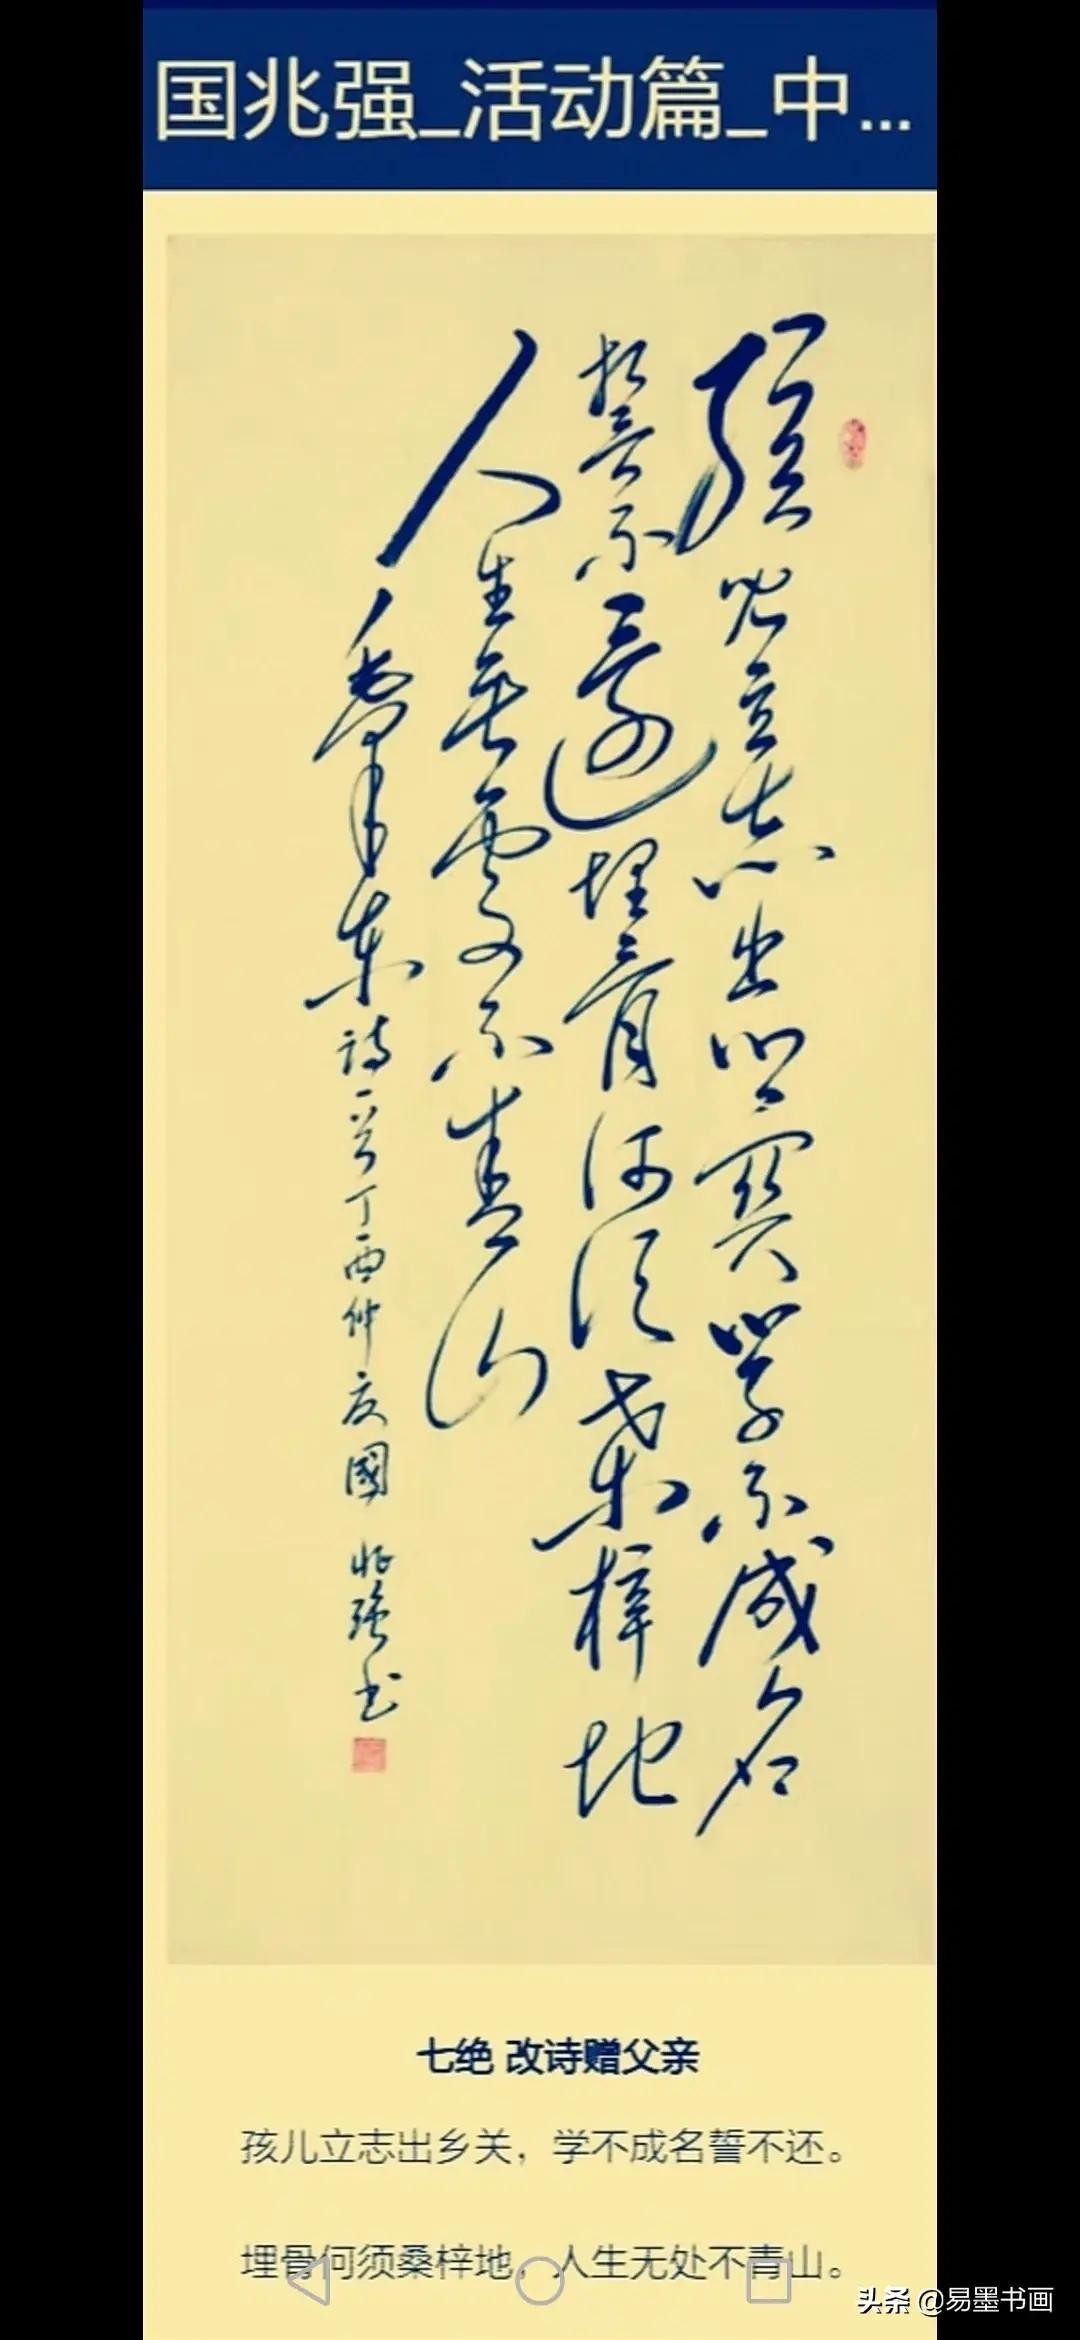 国兆强_活动篇_中...
孩兒立志出鄉關學不成名
誓不還埋骨何須桑梓地
人生無處不青山
毛澤東詩一首丁酉仲夏國兆強书
七绝 改诗赠父亲
孩儿立志出乡关，学不成名誓不还。
埋骨何须桑梓地，人生无处不青山。
头条 @易墨书画